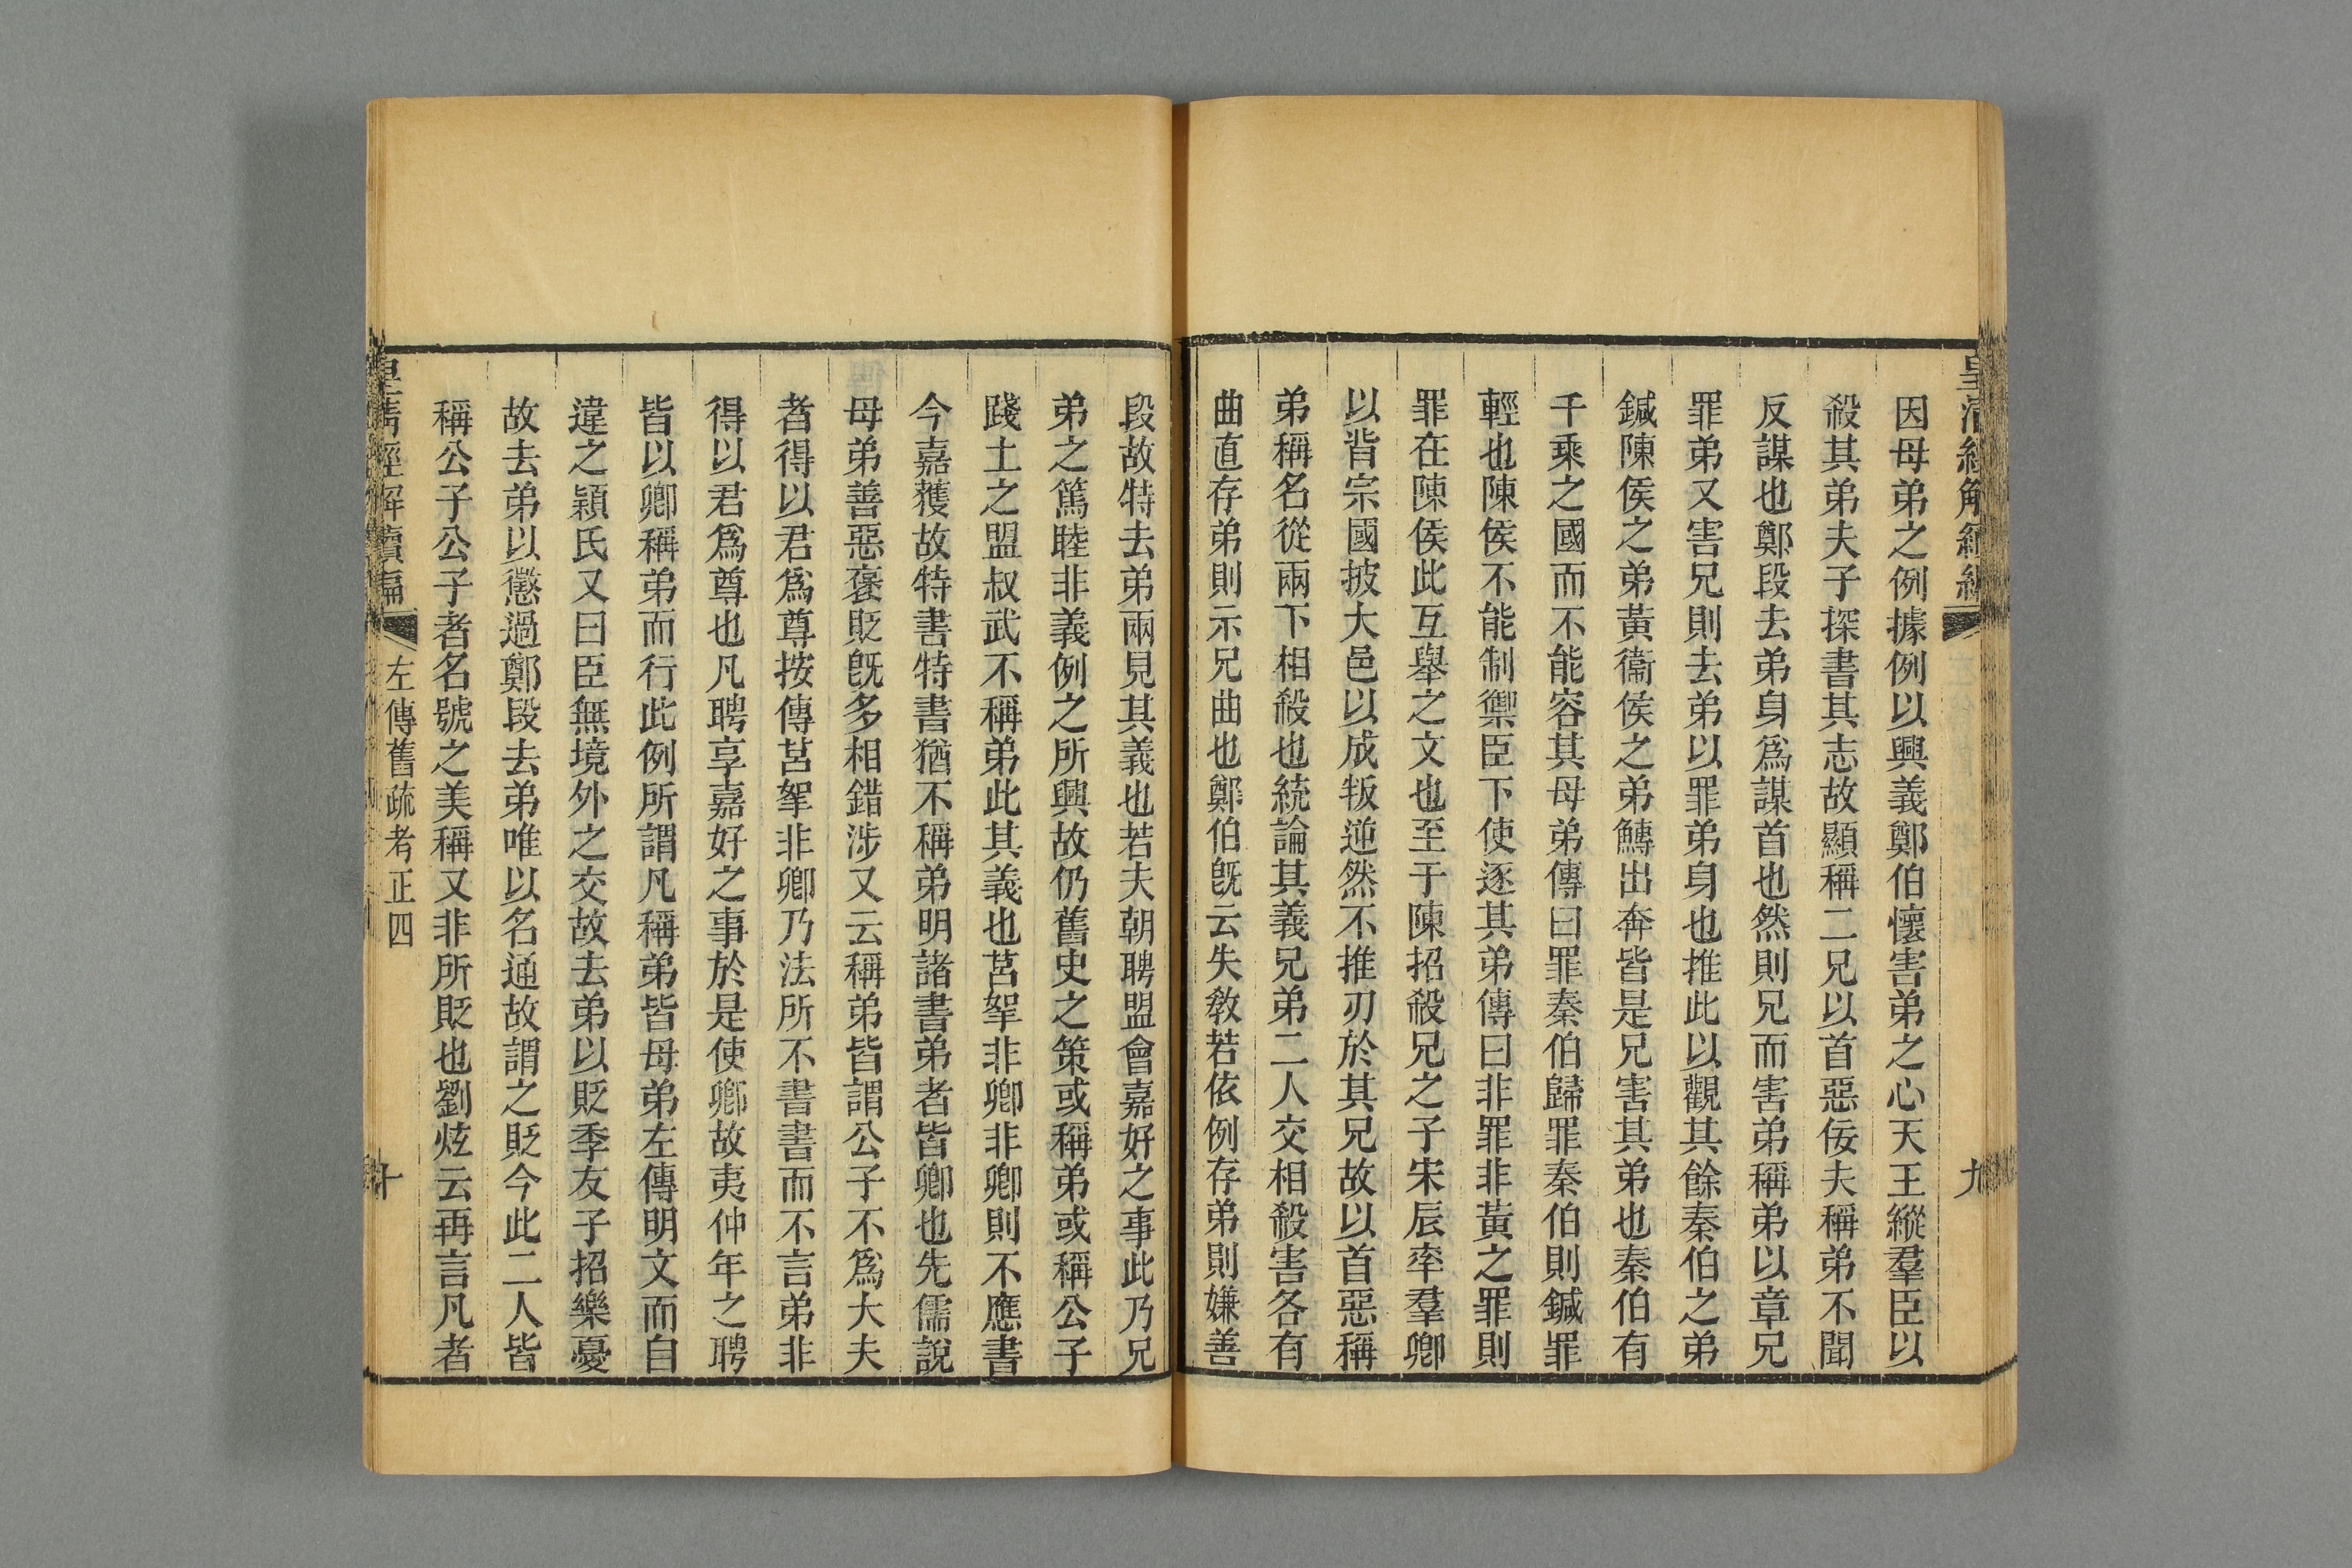 皇清經解續編
九
因母弟之例據例以興義鄭伯懷害弟之心天王縱羣臣以
殺其弟夫子探書其志故顯稱二兄以首惡佞夫稱弟不聞
反謀也鄭段去弟身爲謀首也然則兄而害弟稱弟以章兄
罪弟又害兄則去弟以罪弟身也推此以觀其餘秦伯之弟
鍼陳侯之弟黃衞侯之弟鱄出奔皆是兄害其弟也秦伯有
千乘之國而不能容其母弟傳曰罪秦伯歸罪秦伯則鍼罪
輕也陳侯不能制禦臣下使逐其弟傳曰非罪非黃之罪則
罪在陳侯此互舉之文也至于陳招殺兄之子宋辰率羣卿
以背宗國披大邑以成叛逆然不推刃於其兄故以首惡稱
弟稱名從兩下相殺也統論其義兄弟二人交相殺害各有
曲直存弟則示兄曲也鄭伯旣云失敎若依例存弟則嫌善
段故特去弟兩見其義也若夫朝聘盟會嘉好之事此乃兄
弟之篤睦非義例之所興故仍舊史之策或稱弟或稱公子
踐土之盟叔武不稱弟此其義也莒挐非卿非卿則不應書
今嘉獲故特書特書猶不稱弟明諸書弟者皆卿也先儒說
母弟善惡襃貶旣多相錯涉又云稱弟皆謂公子不爲大夫
者得以君爲尊按傳莒挐非卿乃法所不書書而不言弟非
得以君爲尊也凡聘享嘉好之事於是使卿故夷仲年之聘
皆以卿稱弟而行此例所謂凡稱弟皆母弟左傳明文而自
違之潁氏又曰臣無境外之交故去弟以貶季友子招樂憂
故去弟以懲過鄭段去弟唯以名通故謂之貶今此二人皆
稱公子公子者名號之美稱又非所貶也劉炫云再言凡者
皇清經解續編
左傳舊疏考正四
十